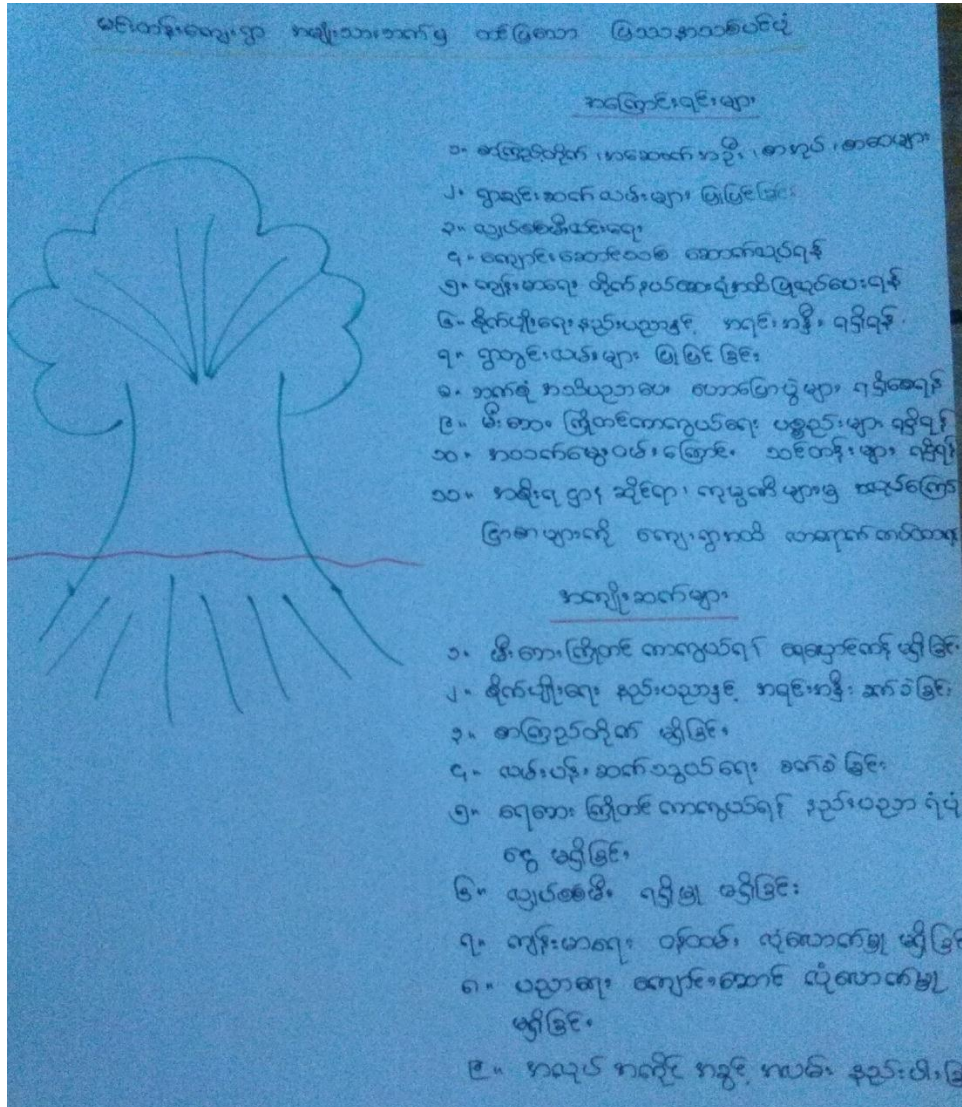 အမျိုးသားဘက်မှ တင်ပြသော ပြဿနာသစ်ပင်ပုံ
အကြောင်းရင်းများ
၁။ စာကြည့်တိုက်၊ အဆောက်အဦး၊ စာအုပ်၊ စာပေများ
၂။ ရွာချင်းဆက်လမ်းများ ပြုပြင်ခြင်း
၃။ လျှပ်စစ်မီးလင်းရေး
၄။ ကျောင်းဆောင်သစ် ဆောက်လုပ်ရန်
၅။ ကျန်းမာရေး တိုက်နယ်ဆေးရုံအထိ ပြုလုပ်ပေးရန်
၆။ စိုက်ပျိုးရေးနည်းပညာနှင့် အရင်းအနှီး ရရှိရန်
၇။ ရွာတွင်းလမ်းများ ပြုပြင်ခြင်း
၈။ ဘက်စုံ အသိပညာပေး ဟောပြောပွဲများ ရရှိစေရန်
၉။ မီးဘေး ကြိုတင်ကာကွယ်ရေး ပစ္စည်းများ ရရှိရန်
၁၀။ အသက်မွေးဝမ်းကြောင်း သင်တန်းများ ရရှိရန်
၁၁။ အစိုးရဌာန ဆိုင်ရာ၊ ကုမ္ပဏီများမှ
များကို ကျေးရွာအထိ
အကျိုးဆက်များ
၁။ မီးဘေးကြိုတင် ကာကွယ်ရန် ရေလှောင်ကန် မရှိခြင်း
၂။ စိုက်ပျိုးရေး နည်းပညာနှင့် အရင်းအနှီး ခက်ခဲခြင်း
၃။ စာကြည့်တိုက် မရှိခြင်း
၄။ လမ်းပန်း ဆက်သွယ်ရေး ခက်ခဲခြင်း
၅။ ရေဘေး ကြိုတင်ကာကွယ်ရန် နည်းပညာ ရံပုံ
ငွေ မရှိခြင်း
၆။ လျှပ်စစ်မီး ရရှိမှု မရှိခြင်း
၇။ ကျန်းမာရေး ဝန်ထမ်း လုံလောက်မှု မရှိခြင်း
၈။ ပညာရေး ကျောင်းဆောင် လုံလောက်မှု
မရှိခြင်း
၉။ အလုပ် အကိုင် အခွင့် အလမ်း နည်းပါး